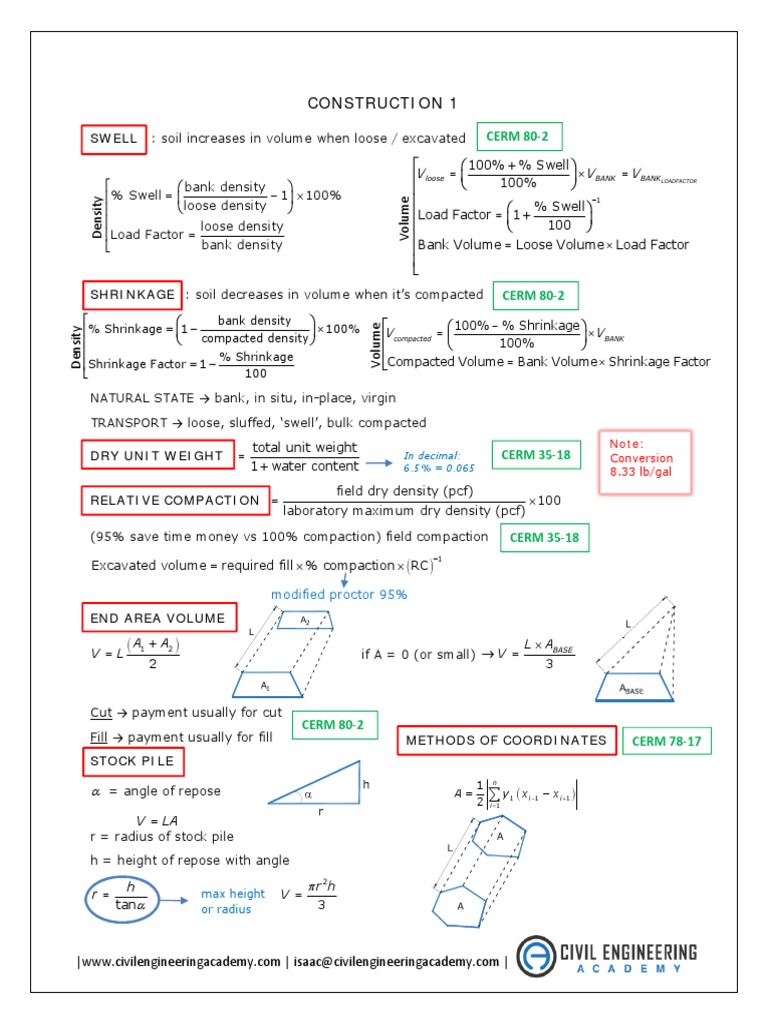 CONSTRUCTION 1
SWELL : soil increases in volume when loose / excavated CERM 80-2
Density
% Swell = (bank density / loose density − 1) × 100%
Load Factor = loose density / bank density
Volume
V_loose = ((100% + % Swell) / 100%) × V_BANK = V_BANK_LOADFACTOR
Load Factor = (1 + % Swell / 100)^−1
Bank Volume = Loose Volume × Load Factor
SHRINKAGE : soil decreases in volume when it's compacted CERM 80-2
Density
% Shrinkage = (1 − bank density / compacted density) × 100%
Shrinkage Factor = 1 − % Shrinkage / 100
Volume
V_compacted = ((100% – % Shrinkage) / 100%) × V_BANK
Compacted Volume = Bank Volume × Shrinkage Factor
NATURAL STATE → bank, in situ, in-place, virgin
TRANSPORT → loose, sluffed, ‘swell’, bulk compacted
DRY UNIT WEIGHT = total unit weight / 1 + water content
In decimal:
6.5% = 0.065
CERM 35-18
Note:
Conversion
8.33 lb/gal
RELATIVE COMPACTION = field dry density (pcf) / laboratory maximum dry density (pcf) × 100
(95% save time money vs 100% compaction) field compaction CERM 35-18
Excavated volume = required fill × % compaction × (RC)^−1
modified proctor 95%
END AREA VOLUME
V = L (A₁ + A₂) / 2
L
A₂
A₁
if A = 0 (or small) → V = L × A_BASE / 3
L
A_BASE
Cut → payment usually for cut
Fill → payment usually for fill
CERM 80-2
METHODS OF COORDINATES CERM 78-17
STOCK PILE
α = angle of repose
V = LA
r = radius of stock pile
h = height of repose with angle
α
h
r
A = 1/2 |∑_{i=1}^{n} y₁ (x_{i−1} − x_{i+1})|
L
A
A
r = h / tanα
max height
or radius
V = πr²h / 3
|www.civilengineeringacademy.com | isaac@civilengineeringacademy.com |
CIVIL ENGINEERING
ACADEMY